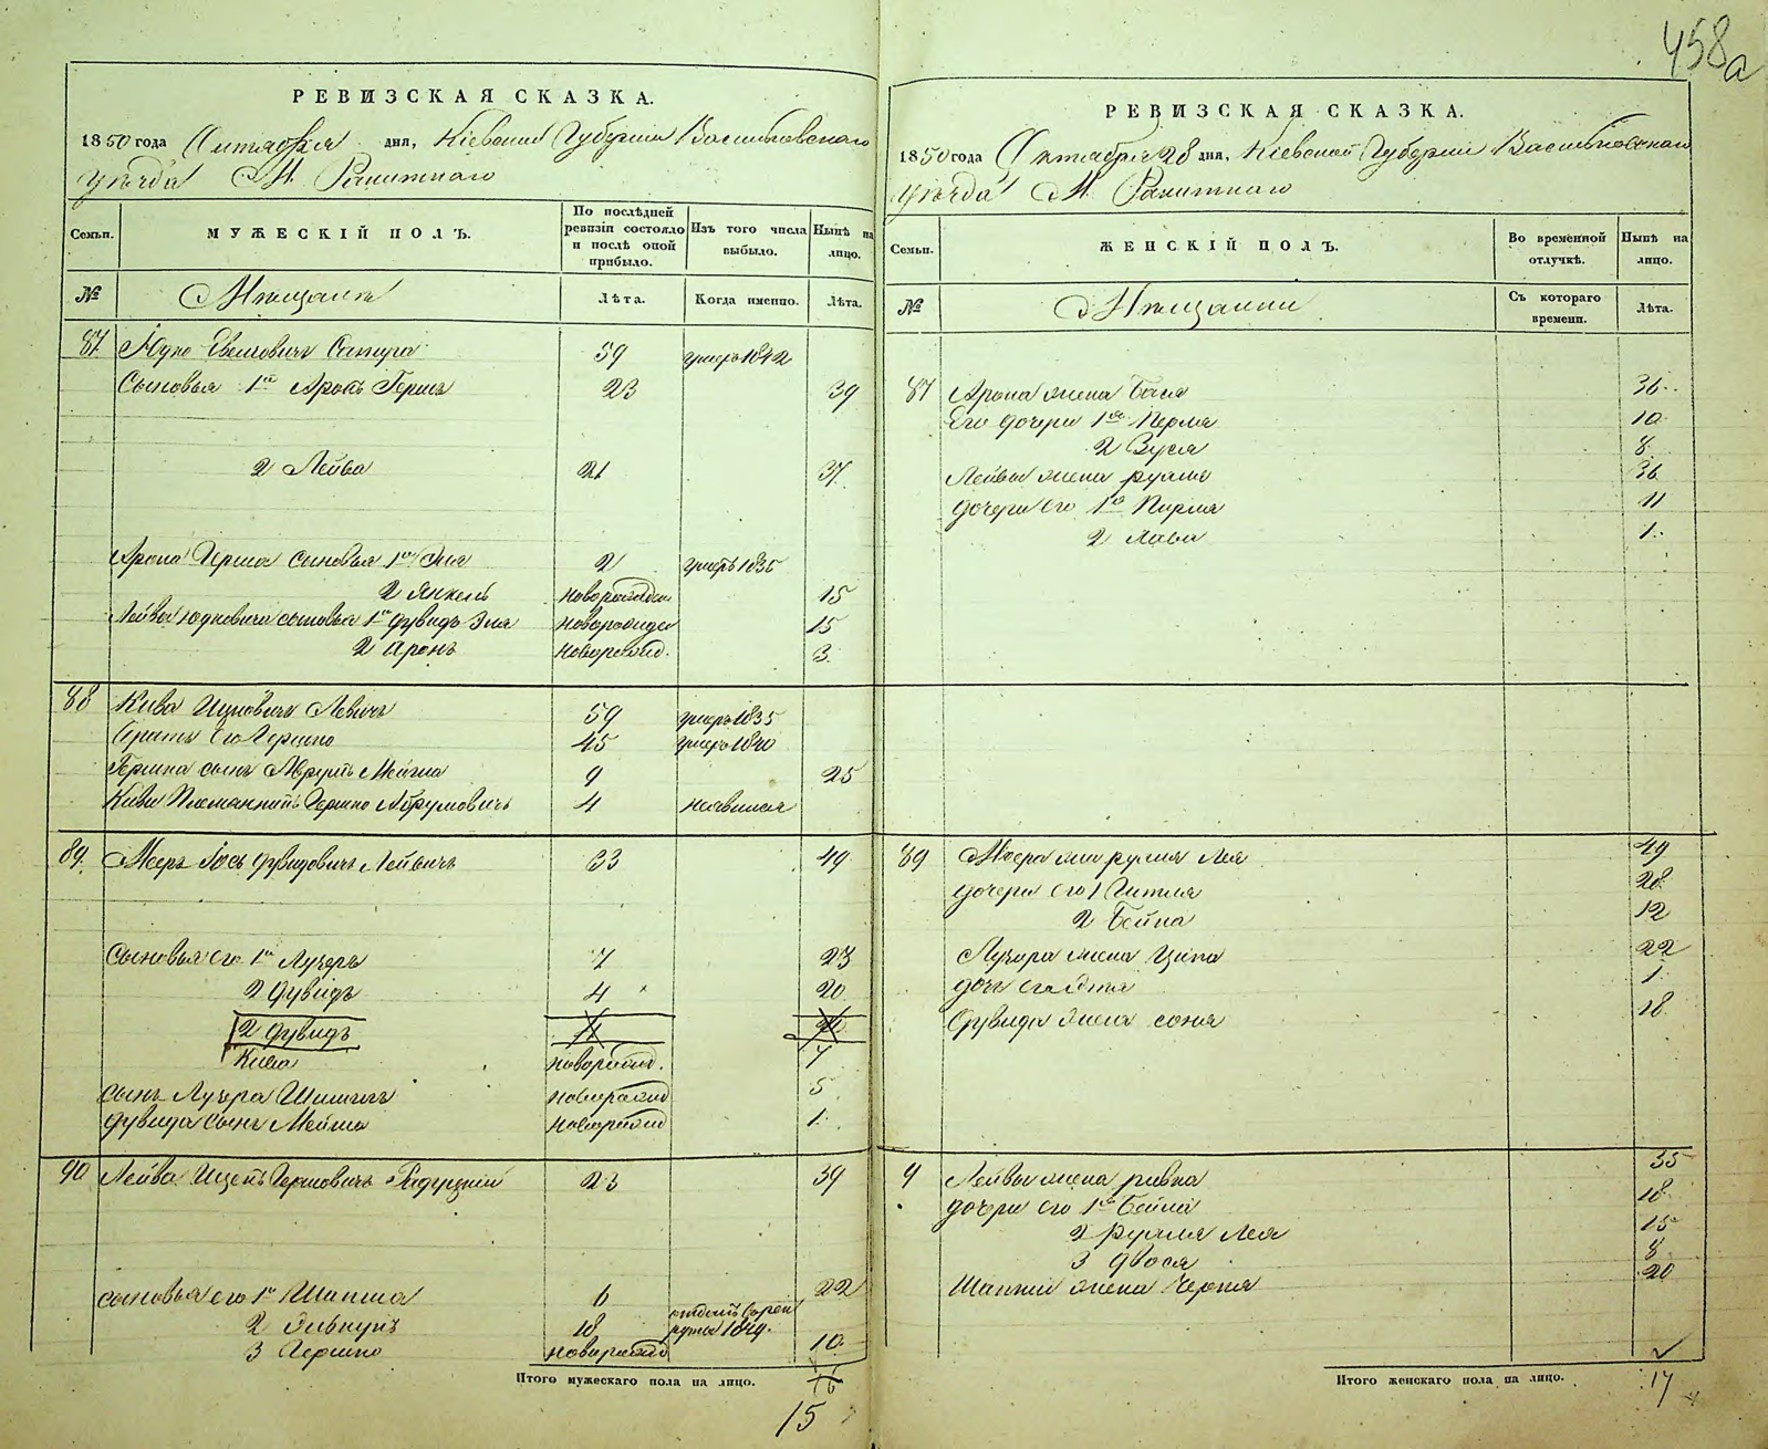 458а
РЕВИЗСКАЯ СКАЗКА.
1850 года Октября дня, Кіевской Губерніи Васильковскаго
Уѣзда М. Ракитнаго
Семьи.
МУЖЕСКІЙ ПОЛЪ.
По послѣдней ревизіи состояло и послѣ оной прибыло.
Изъ того числа выбыло.
Нынѣ на лицо.
№
Мѣщане
Лѣта.
Когда именно.
Лѣта.
87 59 умеръ 1842
Сыновья 1й Аронъ Герша 23 39
2 Лейва 21 37
Арона Герша сыновья 1й Эля 2 умеръ 1835
2 Янкель новорожден 15
Лейвы Юдковича сыновья 1й Дувидъ Эля новорожден 15
2 Аронъ новорожд. 3
88 Кива Ицковичъ Левичъ 59 умеръ 1835
Братъ его Гершко 45 умеръ 1840
Гершка сынъ Аврумъ Мейша 9 25
Кивы Племянникъ Гершко Абрумовичъ 4 неявился
89. Мееръ Іось Дувидовичъ Лейвичъ 33 49
Сыновья его 1й Лузеръ 7 23
2 Дувидъ 4 20
2 Дувидъ
Кива новорожд. 7
сынъ Лузера новорожд 5
Дувида сынъ Мейша новорожд 1
90 Лейва Ицекъ Гершовичъ 23 39
сыновья его 1й Шапша 6 22
2 18 отданъ в рек
руты 1849.
3 Гершко новорожд 10
Итого мужескаго пола на лицо.
15
РЕВИЗСКАЯ СКАЗКА.
1850 года Октября 28 дня, Кіевской Губерніи Васильковскаго
Уѣзда М. Ракитнаго
Семьи.
ЖЕНСКІЙ ПОЛЪ.
Во временной отлучкѣ.
Нынѣ на лицо.
№
Мѣщанки
Съ котораго времени.
Лѣта.
87 Арона жена Бася 36
Его дочери 1я Перля 10
2 Зуся 8
Лейвы жена Рухля 36
дочери его 1я Пирля 11
2 Хава 1
89 Меера жена Рухля Лея 49
дочери его 1 Гитля 28
2 Бейла 12
Лузера жена Ципа 22
дочь его 1
Дувида жена Сося 18
9 Лейвы жена Ривка 35
дочери его 1я Бейла 18
2 Рухля Лея 15
3 Двося 8
Шапши жена Черня 20
Итого женскаго пола на лицо.
17